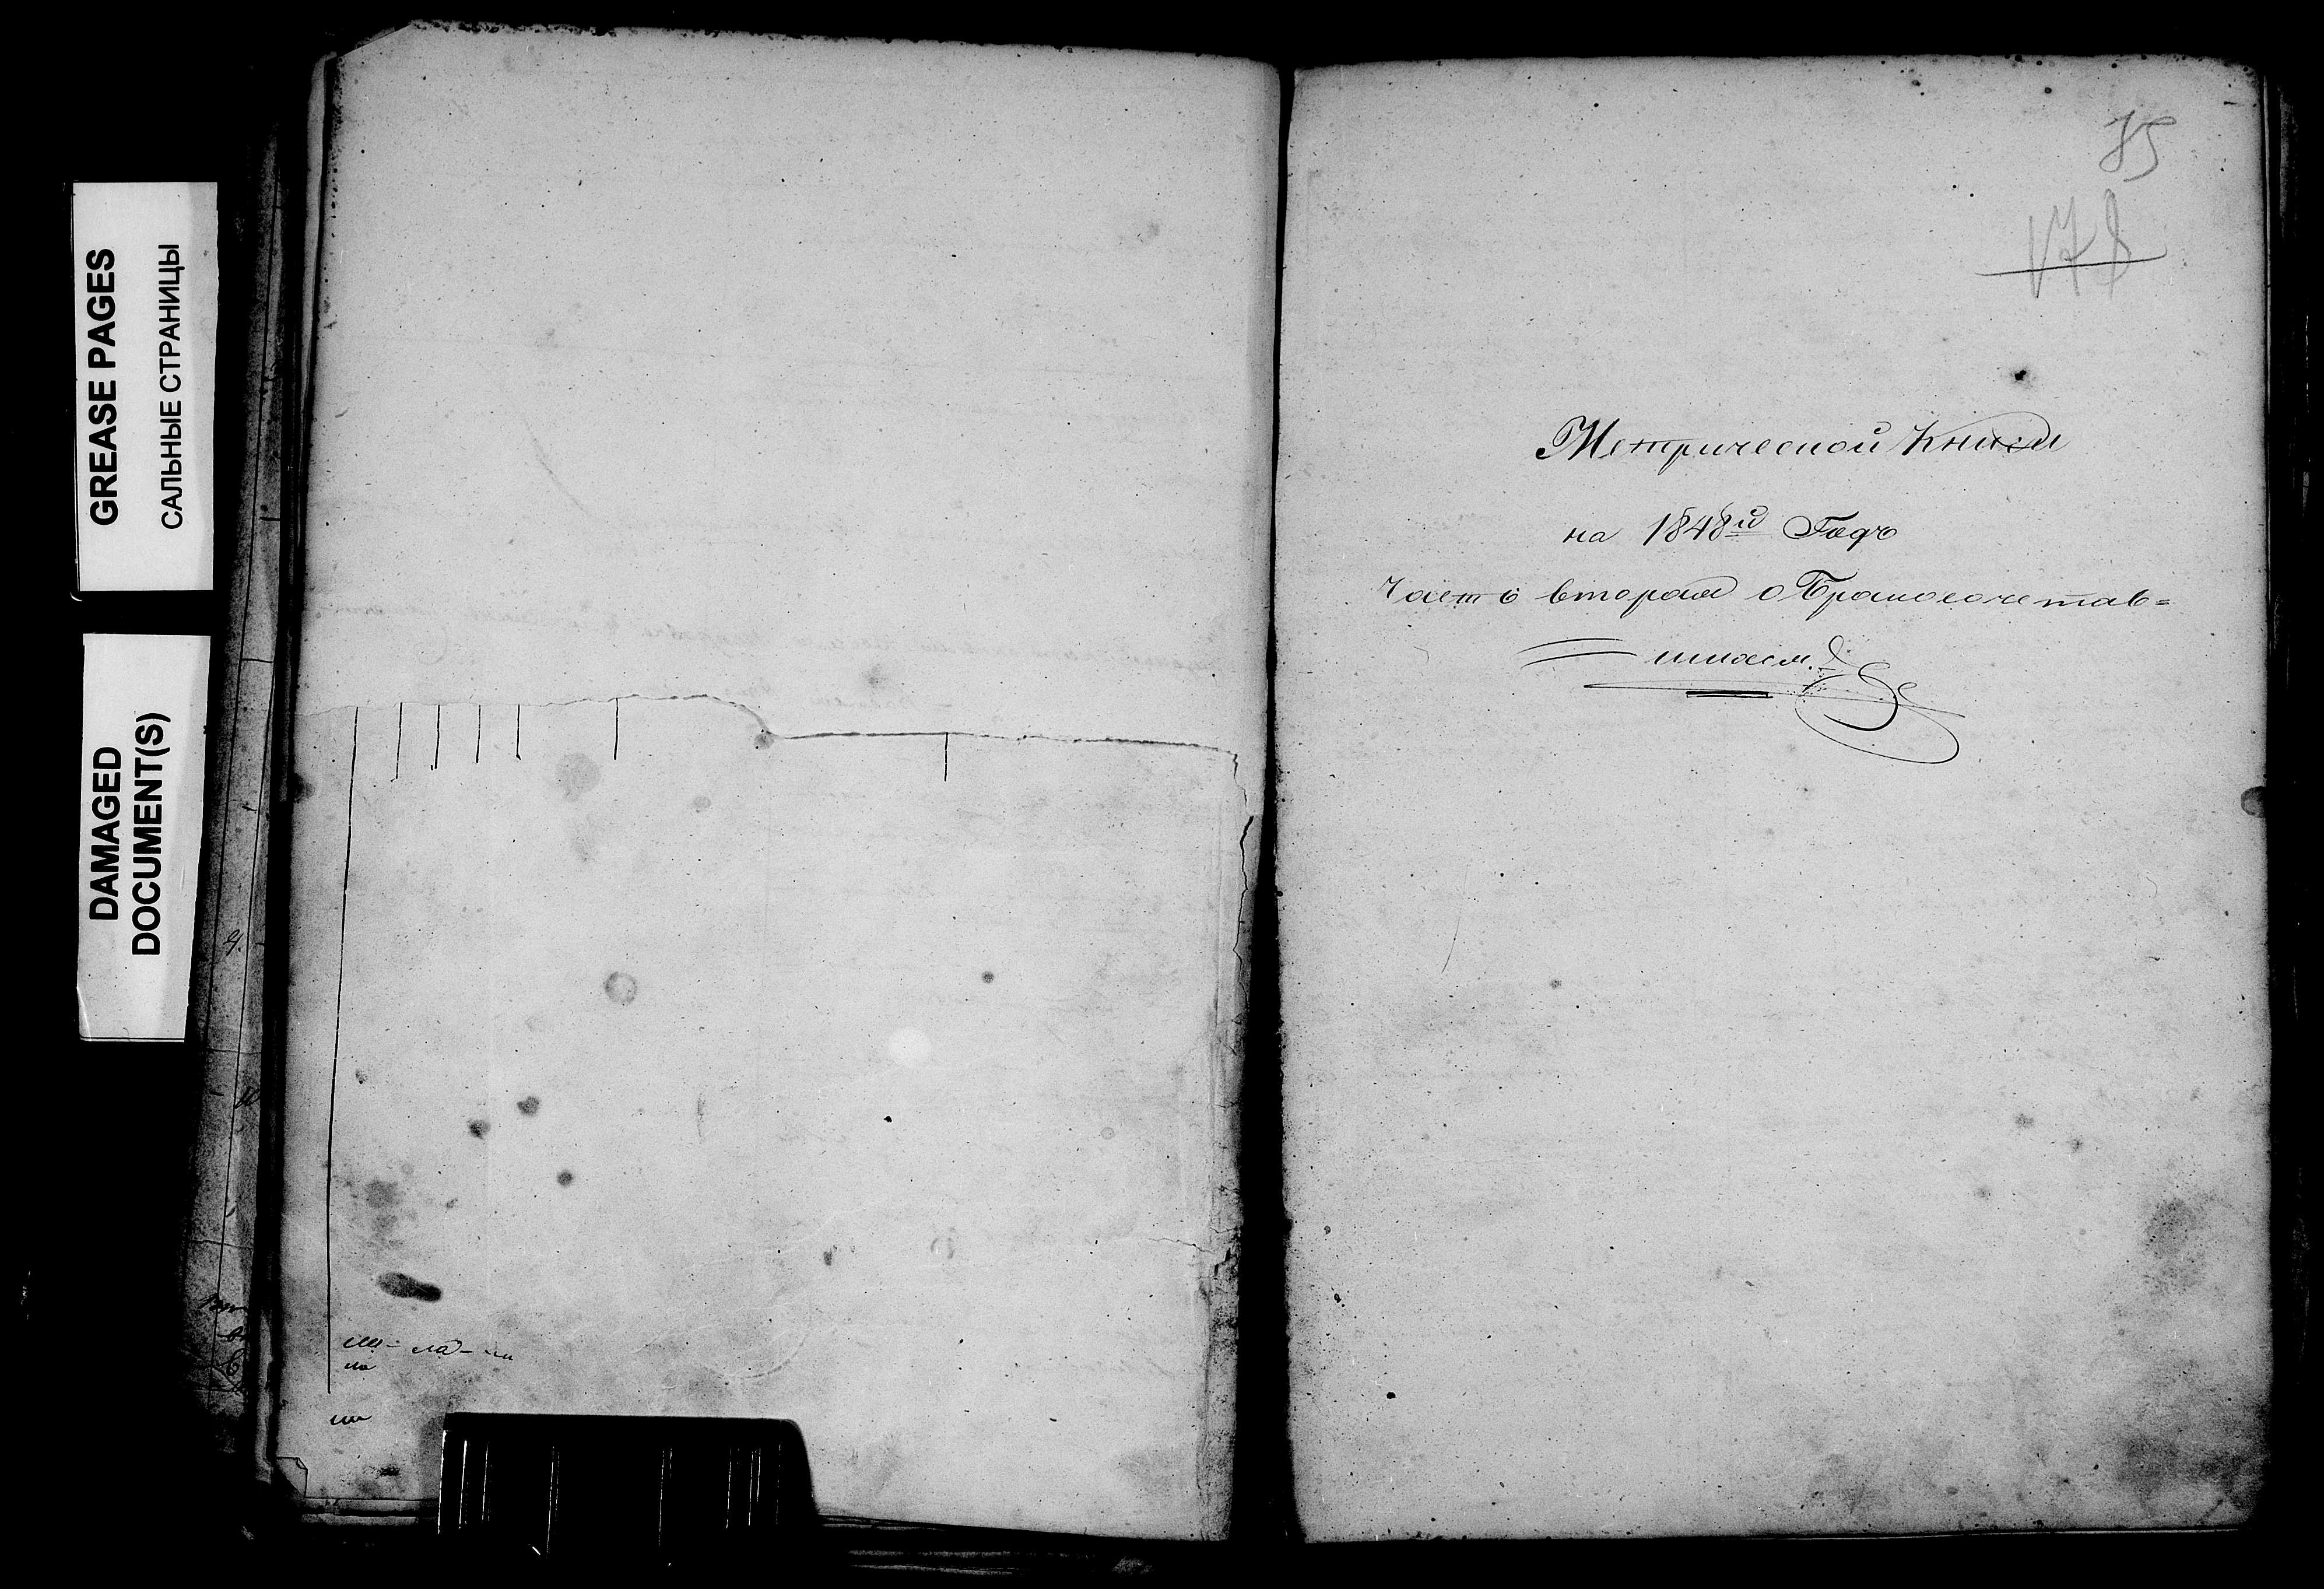 GREASE PAGES
САЛЬНЫЕ СТРАНИЦЫ
DAMAGED
DOCUMENT(S)
178
Метрической Книги
на 1848й Годъ
Часть вторая о Бракосочетав=
шихся.